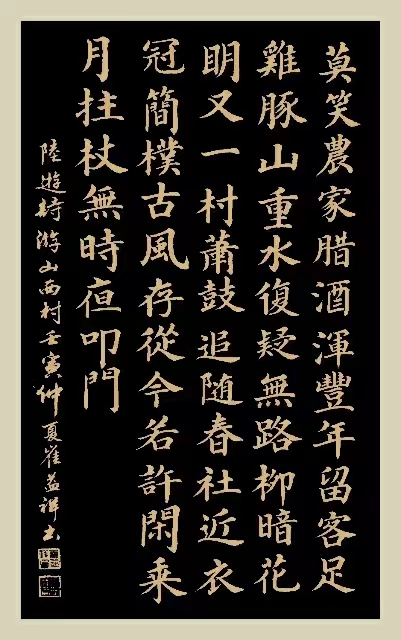 莫笑農家腊酒渾豐年留客足
雞豚山重水復疑無路柳暗花
明又一村蕭鼓追随春社近衣
冠簡樸古風存從今若許閑乘
月拄杖無時夜叩門
陸遊詩游山西村壬寅仲夏崔益祥书